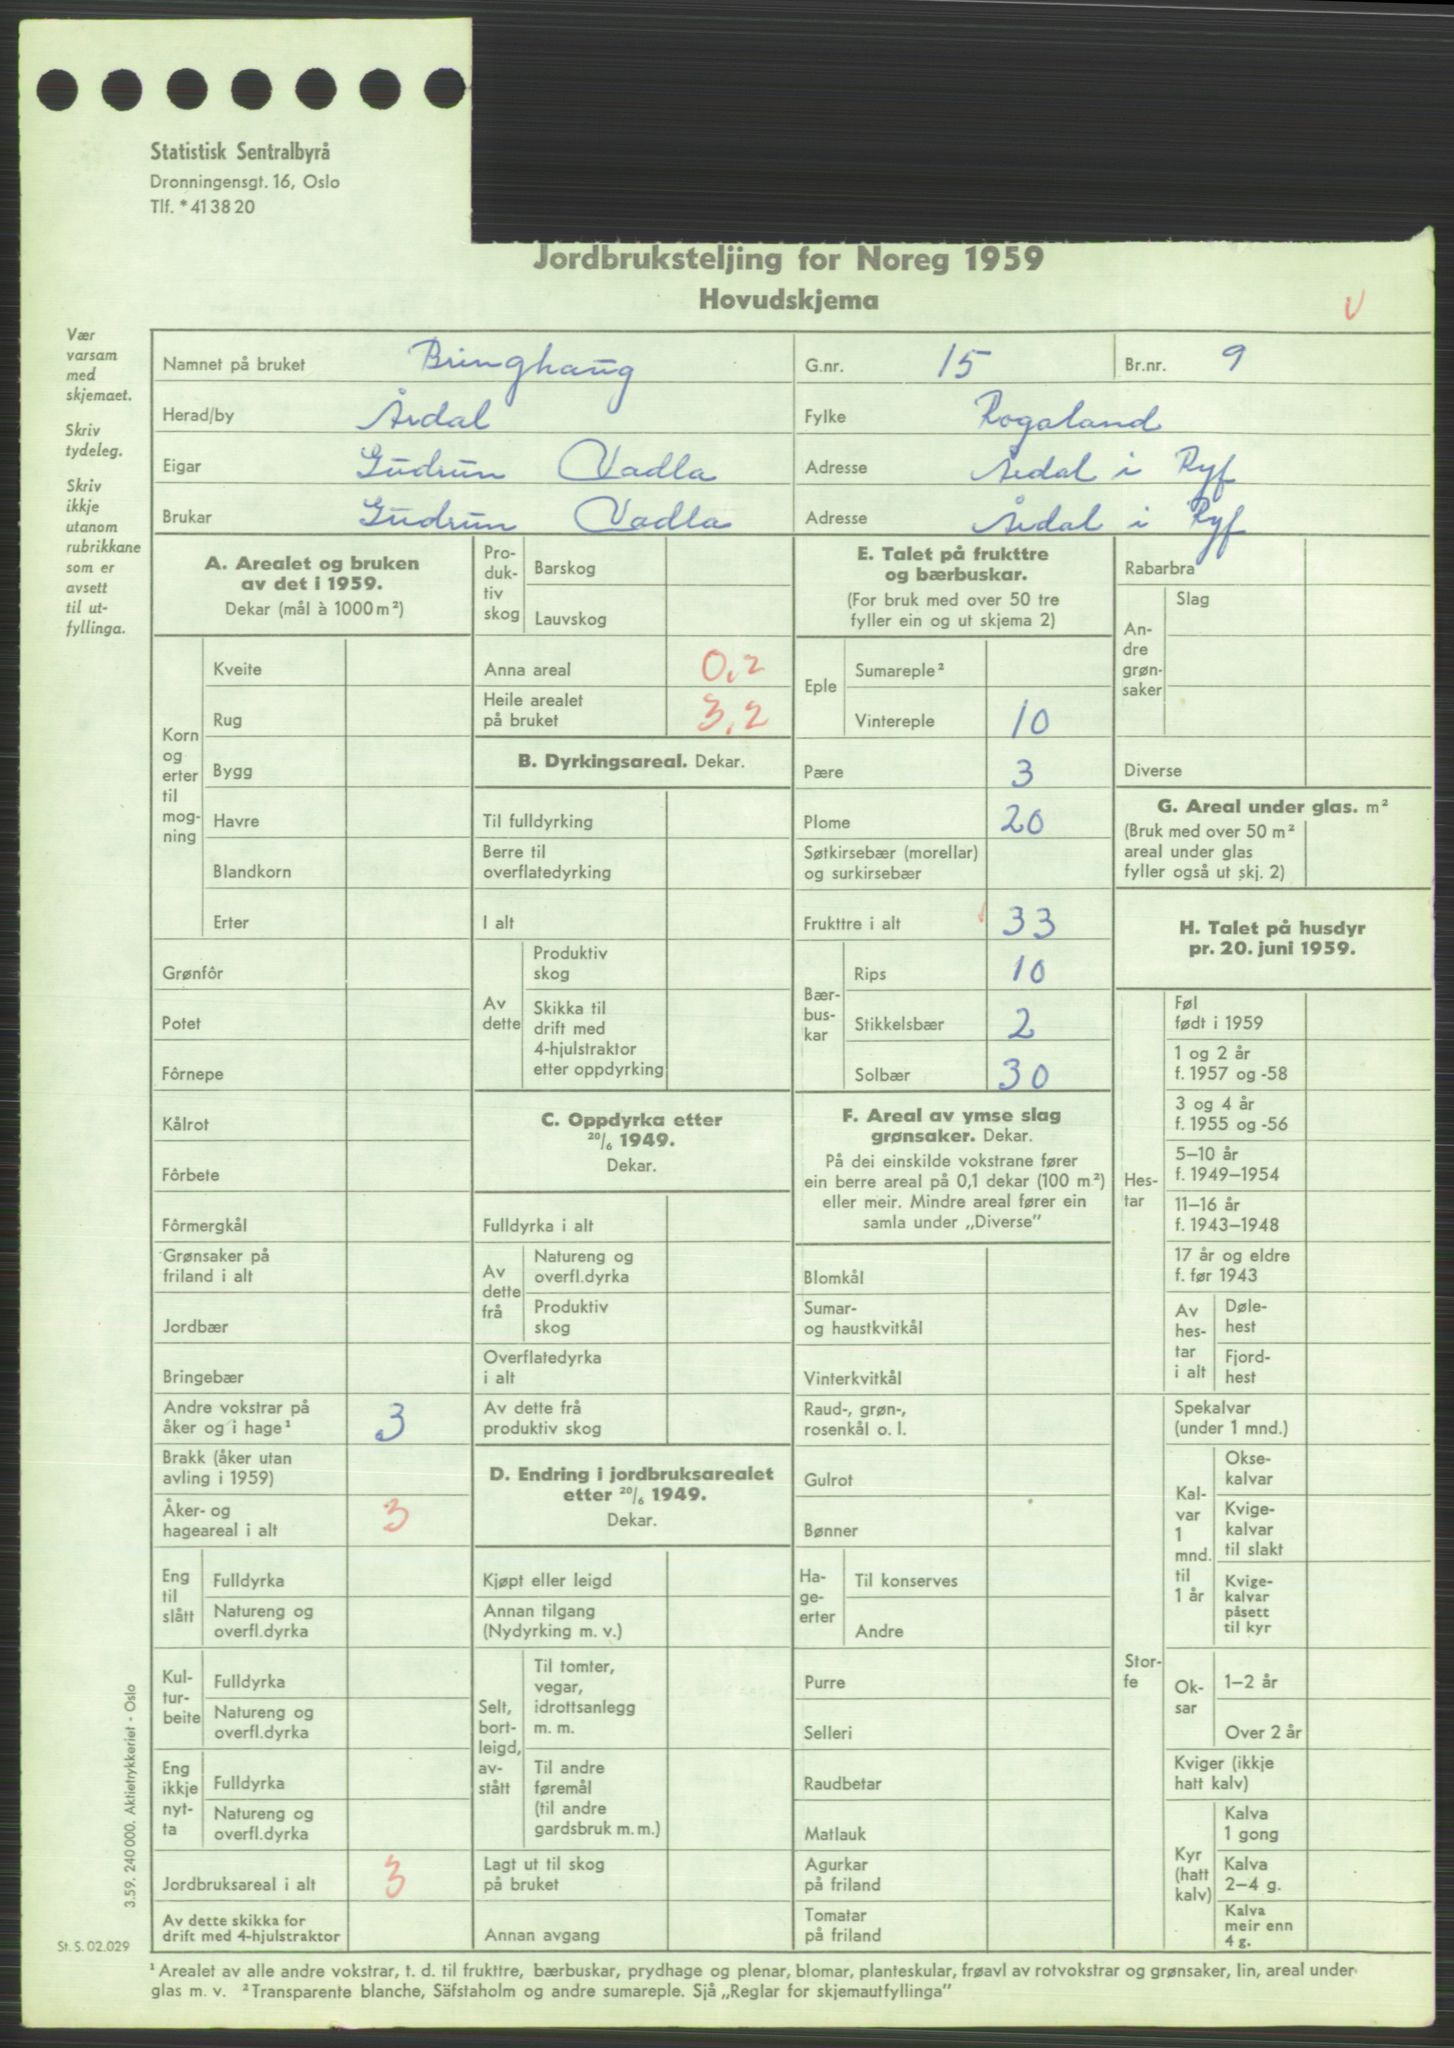 Statistisk Sentralbyrå
Dronningensgt. 16, Oslo
Tlf. *41 38 20
Jordbruksteljing for Noreg 1959
Hovudskjema
V
Vær
varsam
med
skjemaet.
Skriv
tydeleg.
Skriv
ikkje
utanom
rubrikkane
som er
avsett
til ut-
fyllinga.
Namnet på bruket Bringhaug G.nr. 15 Br.nr. 9
Herad/by Årdal Fylke Rogaland
Eigar Gudrun Vadla Adresse Årdal i Ryf
Brukar Gudrun Vadla Adresse Årdal i Ryf
A. Arealet og bruken
av det i 1959.
Dekar (mål à 1000 m²)
Korn
og
erter
til
mog-
ning
Kveite
Rug
Bygg
Havre
Blandkorn
Erter
Grønfôr
Potet
Fôrnepe
Kålrot
Fôrbete
Fôrmergkål
Grønsaker på
friland i alt
Jordbær
Bringebær
Andre vokstrar på
åker og i hage¹ 3
Brakk (åker utan
avling i 1959)
Åker- og
hageareal i alt 3
Eng
til
slått
Fulldyrka
Natureng og
overfl.dyrka
Kul-
tur-
beite
Fulldyrka
Natureng og
overfl.dyrka
Eng
ikkje
nyt-
ta
Fulldyrka
Natureng og
overfl.dyrka
Jordbruksareal i alt 3
Av dette skikka for
drift med 4-hjulstraktor
Pro-
duk-
tiv
skog
Barskog
Lauvskog
Anna areal 0,2
Heile arealet
på bruket 3,2
B. Dyrkingsareal. Dekar.
Til fulldyrking
Berre til
overflatedyrking
I alt
Av
dette
Produktiv
skog
Skikka til
drift med
4-hjulstraktor
etter oppdyrking
C. Oppdyrka etter
20/6 1949.
Dekar.
Fulldyrka i alt
Av
dette
frå
Natureng og
overfl.dyrka
Produktiv
skog
Overflatedyrka
i alt
Av dette frå
produktiv skog
D. Endring i jordbruksarealet
etter 20/6 1949.
Dekar.
Kjøpt eller leigd
Annan tilgang
(Nydyrking m. v.)
Selt,
bort-
leigd,
av-
stått
Til tomter,
vegar,
idrottsanlegg
m. m.
Til andre
føremål
(til andre
gardsbruk m. m.)
Lagt ut til skog
på bruket
Annan avgang
E. Talet på frukttre
og bærbuskar.
(For bruk med over 50 tre
fyller ein og ut skjema 2)
Eple
Sumareple²
Vintereple 10
Pære 3
Plome 20
Søtkirsebær (morellar)
og surkirsebær
Frukttre i alt 33
Bær-
bus-
kar
Rips 10
Stikkelsbær 2
Solbær 30
F. Areal av ymse slag
grønsaker. Dekar.
På dei einskilde vokstrane fører
ein berre areal på 0,1 dekar (100 m.²)
eller meir. Mindre areal fører ein
samla under „Diverse”
Blomkål
Sumar-
og haustkvitkål
Vinterkvitkål
Raud-, grøn-,
rosenkål o. l.
Gulrot
Bønner
Ha-
ge-
erter
Til konserves
Andre
Purre
Selleri
Raudbetar
Matlauk
Agurkar
på friland
Tomatar
på friland
Rabarbra
An-
dre
grøn-
saker
Slag
Diverse
G. Areal under glas. m²
(Bruk med over 50 m²
areal under glas
fyller også ut skj. 2)
H. Talet på husdyr
pr. 20. juni 1959.
Hes-
tar
Føl
født i 1959
1 og 2 år
f. 1957 og -58
3 og 4 år
f. 1955 og -56
5–10 år
f. 1949–1954
11–16 år
f. 1943–1948
17 år og eldre
f. før 1943
Av
hes-
tar
i alt
Døle-
hest
Fjord-
hest
Stor-
fe
Spekalvar
(under 1 mnd.)
Kal-
var
1
mnd.
til
1 år
Okse-
kalvar
Kvige-
kalvar
til slakt
Kvige-
kalvar
påsett
til kyr
Ok-
sar
1–2 år
Over 2 år
Kviger (ikkje
hatt kalv)
Kyr
(hatt
kalv)
Kalva
1 gong
Kalva
2–4 g.
Kalva
meir enn
4 g.
3.59. 240 000. Aktietrykkeriet - Oslo
St. S. 02.029
¹ Arealet av alle andre vokstrar, t. d. til frukttre, bærbuskar, prydhage og plenar, blomar, planteskular, frøavl av rotvokstrar og grønsaker, lin, areal under
glas m. v. ² Transparente blanche, Säfstaholm og andre sumareple. Sjå „Reglar for skjemautfyllinga”